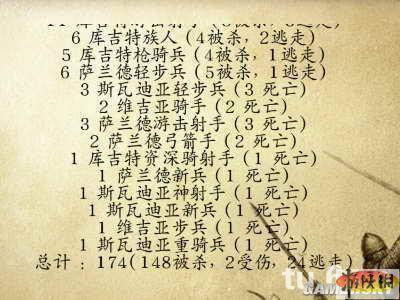 6 库吉特族人（4被杀，2逃走）
5 库吉特枪骑兵（4被杀，1逃走）
6 萨兰德轻步兵（5被杀，1逃走）
3 斯瓦迪亚轻步兵（3 死亡）
2 维吉亚骑手（2 死亡）
3 萨兰德游击射手（3 死亡）
2 萨兰德弓箭手（2 死亡）
1 库吉特资深骑射手（1 死亡）
1 萨兰德新兵（1 死亡）
1 斯瓦迪亚神射手（1 死亡）
1 斯瓦迪亚新兵（1 死亡）
1 维吉亚步兵（1 死亡）
1 斯瓦迪亚重骑兵（1 死亡）
总计：174(148被杀，2受伤，24逃走）